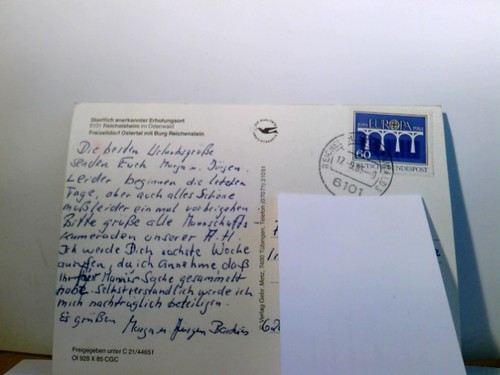 Staatlich anerkannter Erholungsort
6101 Reichelsheim im Odenwald
Feriendorf Ostertal mit Burg Reichenstein
Die besten Urlaubsgrüße
senden Euch Marga u. Jürgen.
Leider beginnen die letzten
Tage, aber auch alles Schöne
muß leider einmal vorbeigehen
Bitte grüße alle Mannschafts-
kameraden unserer A.H.
Ich werde Dich nächste Woche
anrufen, da ich annehme daß
Ihr für Mannis Sache gesammelt
habt. Selbstverständlich werde ich
mich nachträglich beteiligen.
Es grüßen Marga u. Jürgen
Freigegeben unter C 21/44651
Ol 928 X 85 CGC
Verlag Gebr. Metz, 7400 Tübingen, Telefon (07071) 31051
1959 EUROPA 1984
60
DEUTSCHE BUNDESPOST
6101